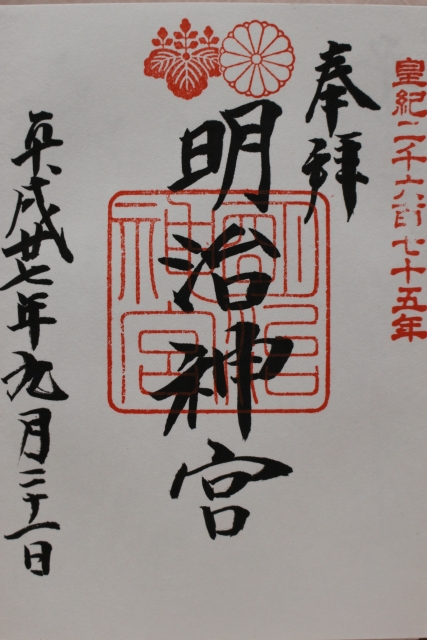 皇紀二千六百七十五年
奉拝
明治神宮
明治神宮
平成廿七年九月二十一日